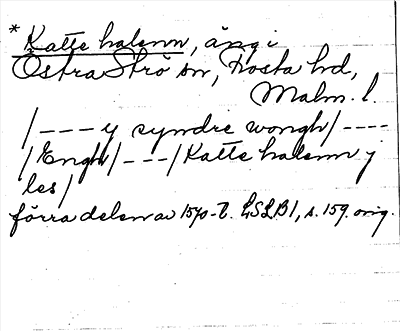 * Katte halenn, äng i
Östra Strö sn, Frosta hd,
Malm. l.
/---y syndre wongh/----
/Engh/---/Katte halenn j
les/
förra delen av 1570-t. LSLB1, s. 159. orig.